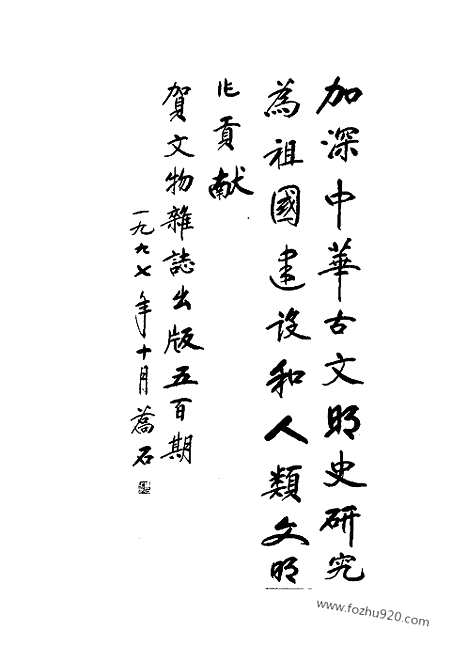 加深中華古文明史研究
為祖國建设和人類文明
作貢献
賀文物雜誌出版五百期
一九九七年十月石
www.fozhu920.com